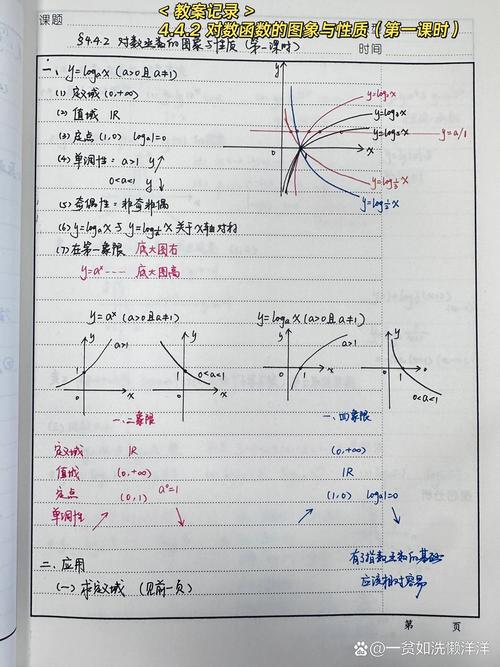 <教案记录>
4.4.2 对数函数的图象与性质（第一课时）
课题
§4.4.2 对数函数的图象与性质（第一课时）
时间
一、y=logₐx (a>0且a≠1)
(1) 定义域 (0,+∞)
(2) 值域 IR
(3) 定点 (1,0) logₐ1=0
(4) 单调性: a>1 y↗
0<a<1 y↘
(5) 奇偶性: 非奇非偶
(6) y=logₐx 与 y=log_{1/a}x 关于x轴对称
(7) 在第一象限 底大图右
y=aˣ---- 底大图高
y
x
0
y=log₂x
y=log₃x
y=log₅x
y=log_{1/3}x
y=log_{1/2}x
y=aˣ (a>0且a≠1)
y=logₐx (a>0且a≠1)
y
a>1
1
0
x
y
1
0<a<1
0
x
y
a>1
1
0
x
y
1
0
0<a<1
一、二象限
一、四象限
定义域 IR (0,+∞)
值域 (0,+∞) IR
定点 (0,1) a⁰=1 (1,0) logₐ1=0
单调性 ↗ ↘ ↗ ↘
二、应用
(一) 求定义域 (见前一页)
有了指数函数的基础
应该相对容易
第 页
@一贫如洗懒洋洋